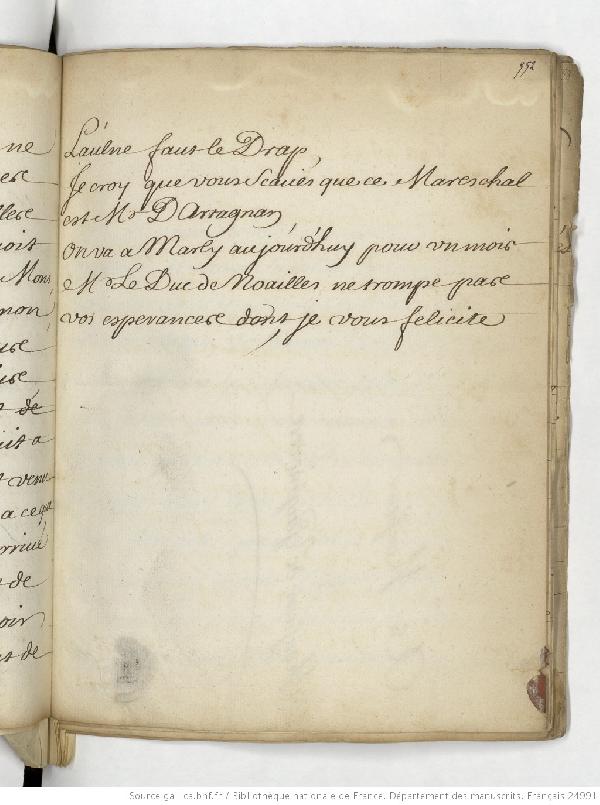 552
L'aulne faut le Drap,
Je croy que vous Scaues que ce Mareschal
est Mr D'Arragnan,
on va a Marly aujourd'huy pour un mois
Mr Le Duc de Noailles ne trompe pas
vos esperances dont je vous felicite
ne
noit
Mons
mon
de
uit a
venu
a ce que
arriué
t de
oir
nt de
Source gallica.bnf.fr / Bibliothèque nationale de France. Département des manuscrits. Français 24991